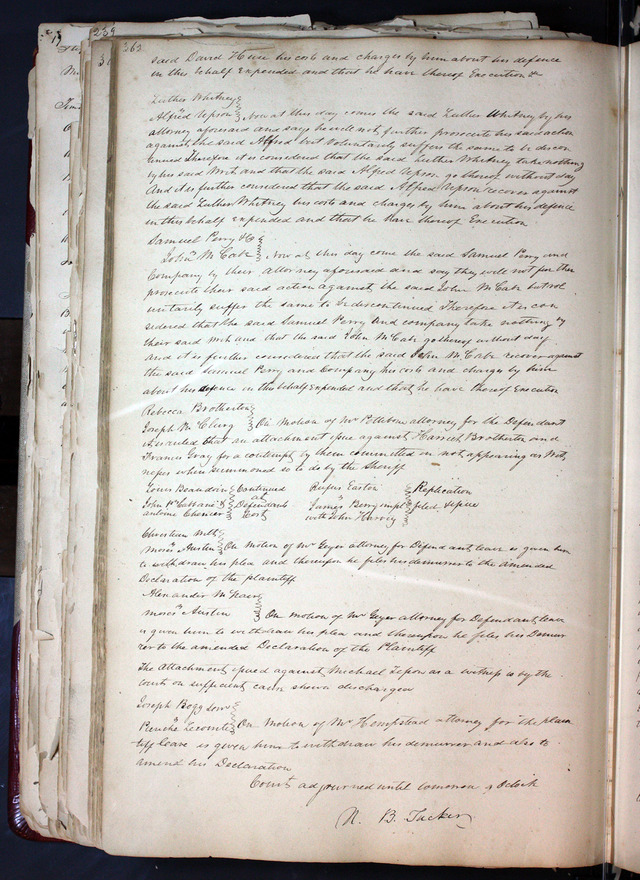 239
262
said David Hume his costs and charges by him about his defence
in this behalf Expended and that he have thereof Execution &c
Luther Whitney
Alfred Tepson Now at this day comes the said Luther Whitney by his
attorney aforesaid and says he will not further prosecute his said action
against the said Alfred but Voluntarily suffers the same to be discon
tinued Therefore it is considered that the said Luther Whitney take nothing
by his said Writ and that the said Alfred Tepson go thereof without day
And it is further considered that the said Alfred Tepson recover against
the said Luther Whitney his costs and charges by him about his defence
in this behalf expended and that he have thereof Execution
Samuel Perry & Co
John McCabe Now at this day come the said Samuel Perry and
Company by their attorney aforesaid and say they will not further
prosecute their said action against the said John McCabe but vol
untarily suffer the same to be discontinued Therefore it is con
sidered that the said Samuel Perry and company take nothing by
their said Writ and that the said John McCabe go thereof without day
and it is further considered that the said John McCabe recover against
the said Samuel Perry and Company his costs and charges by him
about his defence in this behalf Expended and that he have thereof Execution
Rebecca Brotherton
Joseph McClurg On Motion of Mr Pettibone attorney for the Defendant
it is ruled that an attachment issue against Harriet Brotherton and
Francis Gray for a contempt by them committed in not appearing as Wit
nesses when summoned so to do by the Sheriff
Louis Beaudoin Continued Rufus Easton Replication
John P. Cabanné & at Defendants James Berry impl filed & issue
Antoine Chenier Cost with John Harvey
Christian Wilt
Moses Austin On Motion of Mr Geyer attorney for Defendant, leave is given him
to withdraw his plea and thereupon he files his demurrer to the amended
Declaration of the plaintiff
Alexander McNair
Moses Austin On motion of Mr Geyer attorney for Defendant, leave
is given him to withdraw his plea and thereupon he files his Demur
rer to the amended Declaration of the Plaintiff
The attachment issued against Michael Tesson as a witness is by the
court on sufficient cause shown discharged
Joseph Boggs
Lecomte On Motion of Mr Hempstead attorney for the plain
tiff leave is given him to withdraw his demurrer and also to
amend his Declaration
Court adjourned until tomorrow 9 Oclock
N. B. Tucker